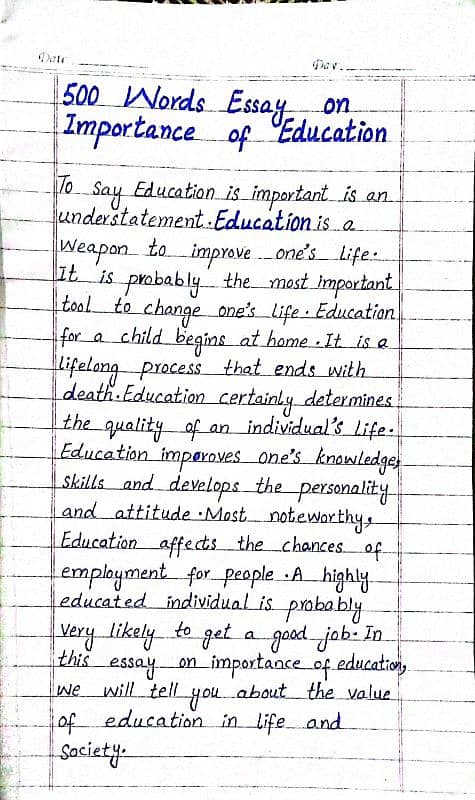 Date
Day
500 Words Essay on
Importance of Education
To say Education is important is an
understatement. Education is a
Weapon to improve one's life.
It is probably the most important
tool to change one's life. Education
for a child begins at home. It is a
lifelong process that ends with
death. Education certainly determines
the quality of an individual's life.
Education imporoves one's knowledge,
skills and develops the personality
and attitude. Most noteworthy,
Education affects the chances of
employment for people. A highly
educated individual is probably
very likely to get a good job. In
this essay on importance of education,
we will tell you about the value
of education in life and
Society.